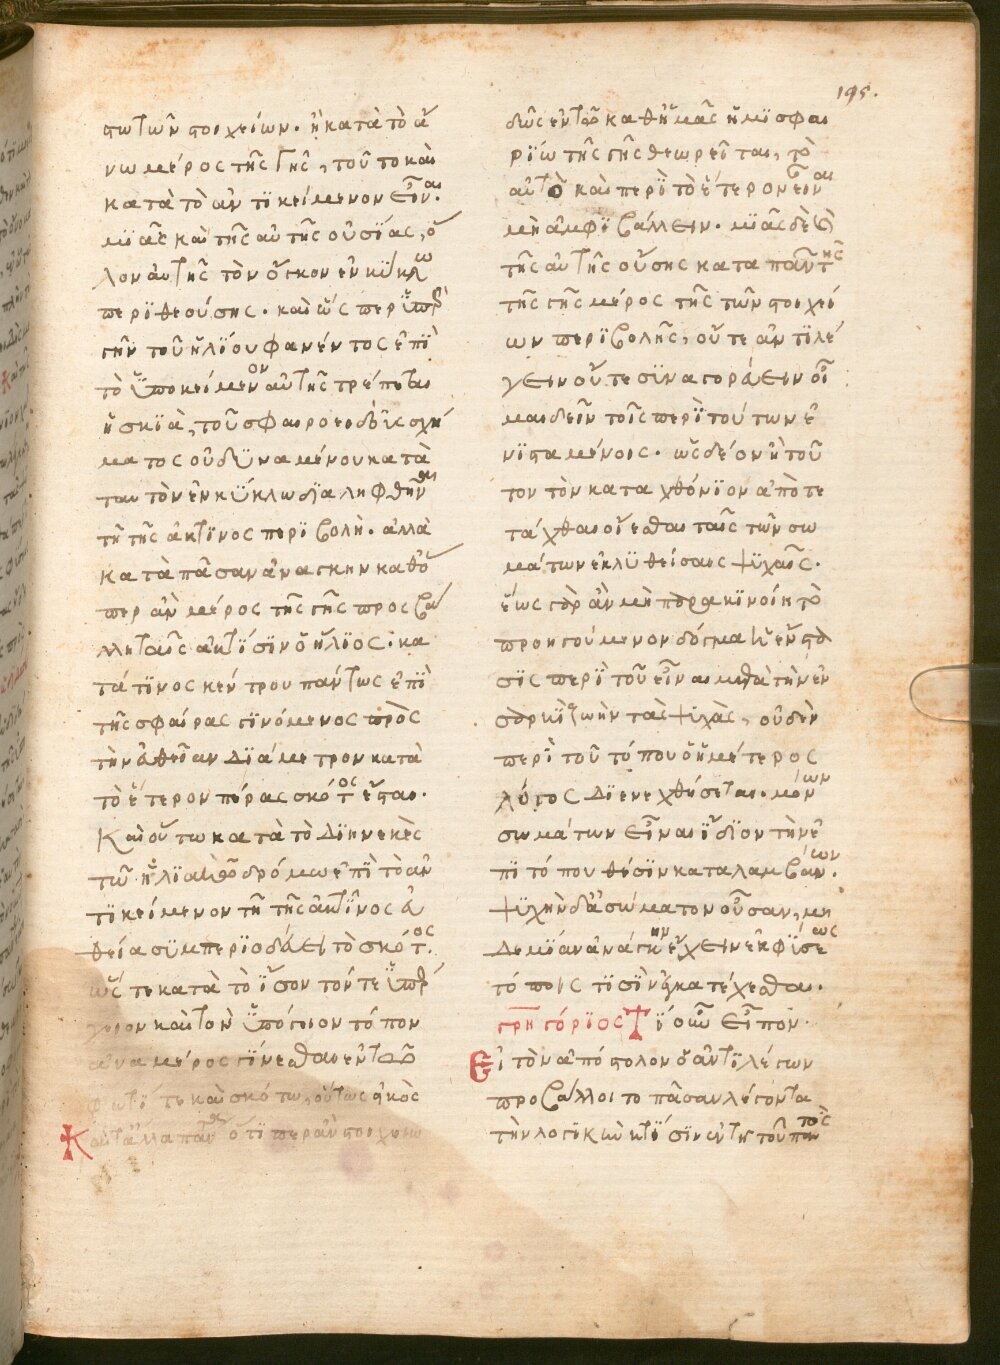 195.
στω τῶν στοιχείων. ἢ κατὰ τὸ ἄ
νω μέρος τῆς γῆς, τοῦτο καὶ
κατὰ τὸ ἀντικείμενον εἶναι.
μιᾶς καὶ τῆς αὐτῆς οὐσίας, ὅ
λον αὐτῆς τὸν ὄγκον ἐν κύκλω
περιθεούσης. καὶ ὡς περ ὑπὲρ
γῆν τοῦ ἡλίου φανέντος ἐπὶ
τὸ ὑποκείμενον αὐτῆς τρέπεται
ἡ σκιὰ, τοῦ σφαιροειδοῦς σχή
ματος οὐ δυναμένου κατὰ
ταυτὸν ἐν κύκλω διαληφθῆναι
τῆ τῆς ἀκτῖνος περιβολῆ. ἀλλὰ
κατὰ πᾶσαν ἀνάγκην καθ' ὅ
περ ἂν μέρος τῆς γῆς προσβά
λλη ταῖς ἀκτίσιν ὁ ἥλιος. κα
τά τινος κέντρου πάντως ἐπὶ
τῆς σφαίρας γινόμενος πρὸς
τὴν εὐθεῖαν διάμετρον κατὰ
τὸ ἕτερον πέρας σκότος ἔσται.
Καὶ οὕτω κατὰ τὸ διηνεκὲς
τῶ ἡλιακῶ δρόμω ἐπὶ τὸ ἀν
τικείμενον τῆ τῆς ἀκτῖνος εὐ
θεία συμπεριοδεύει τὸ σκότος.
ὥς τε κατὰ τὸ ἶσον τόν τε ὑπέρ
γειον καὶ τὸν ὑπόγειον τόπον
ἀνα μέρος γίνεσθαι ἐν τῶ
φωτί τε καὶ σκότω, οὕτως εἰκὸς
καὶ τἄλλα πάντα ὅτι περ ἂν στοιχειω
δῶς ἐν τῶ καθ' ἡμᾶς ἡμισφαι
ρίω τῆς γῆς θεωρεῖται, τὸ
αὐτὸ καὶ περὶ τὸ ἕτερον εἶναι
μὴ ἀμφιβάλλειν. μιᾶς δὲ καὶ
τῆς αὐτῆς οὔσης κατα παντὸς
τῆς γῆς μέρος τῆς τῶν στοιχεί
ων περιβολῆς, οὔτε ἀντιλέ
γειν οὔτε συναγορεύειν οἶ
μαι δεῖν τοῖς περὶ τούτων ἐ
νισταμένοις. ὡς δέον ἢ τοῦ
τον τὸν καταχθόνιον ἀποτε
τάχθαι οἴεσθαι ταῖς τῶν σω
μάτων ἐκλυθείσαις ψυχαῖς.
ἕως γὰρ ἂν μὴ παρακινοίη τὸ
προηγούμενον δόγμα ἡ ἔνστα
σις περὶ τοῦ εἶναι μετὰ τὴν ἐν
σαρκὶ ζωὴν τὰς ψυχὰς, οὐδὲν
περὶ τοῦ τόπου ὁ ἡμέτερος
λόγος διενεχθήσεται. μόνων
σωμάτων εἶναι ἴδιον τὴν ἐ
πιτόπου θέσιν καταλαμβάνων.
ψυχὴν δ' ἀσώματον οὖσαν, μη
δεμίαν ἀνάγκην ἔχειν ἐκ φύσεως
τόποις τισὶν ἐγκατέχεσθαι.
Γρηγόριος Τί οὖν εἶπον
Εἰ τὸν ἀπόστολον ὁ ἀντιλέγων
προβάλλοι το πᾶσαν λέγοντα
τὴν λογικὴν κτίσιν ἐν τῆ τοῦ παντὸς